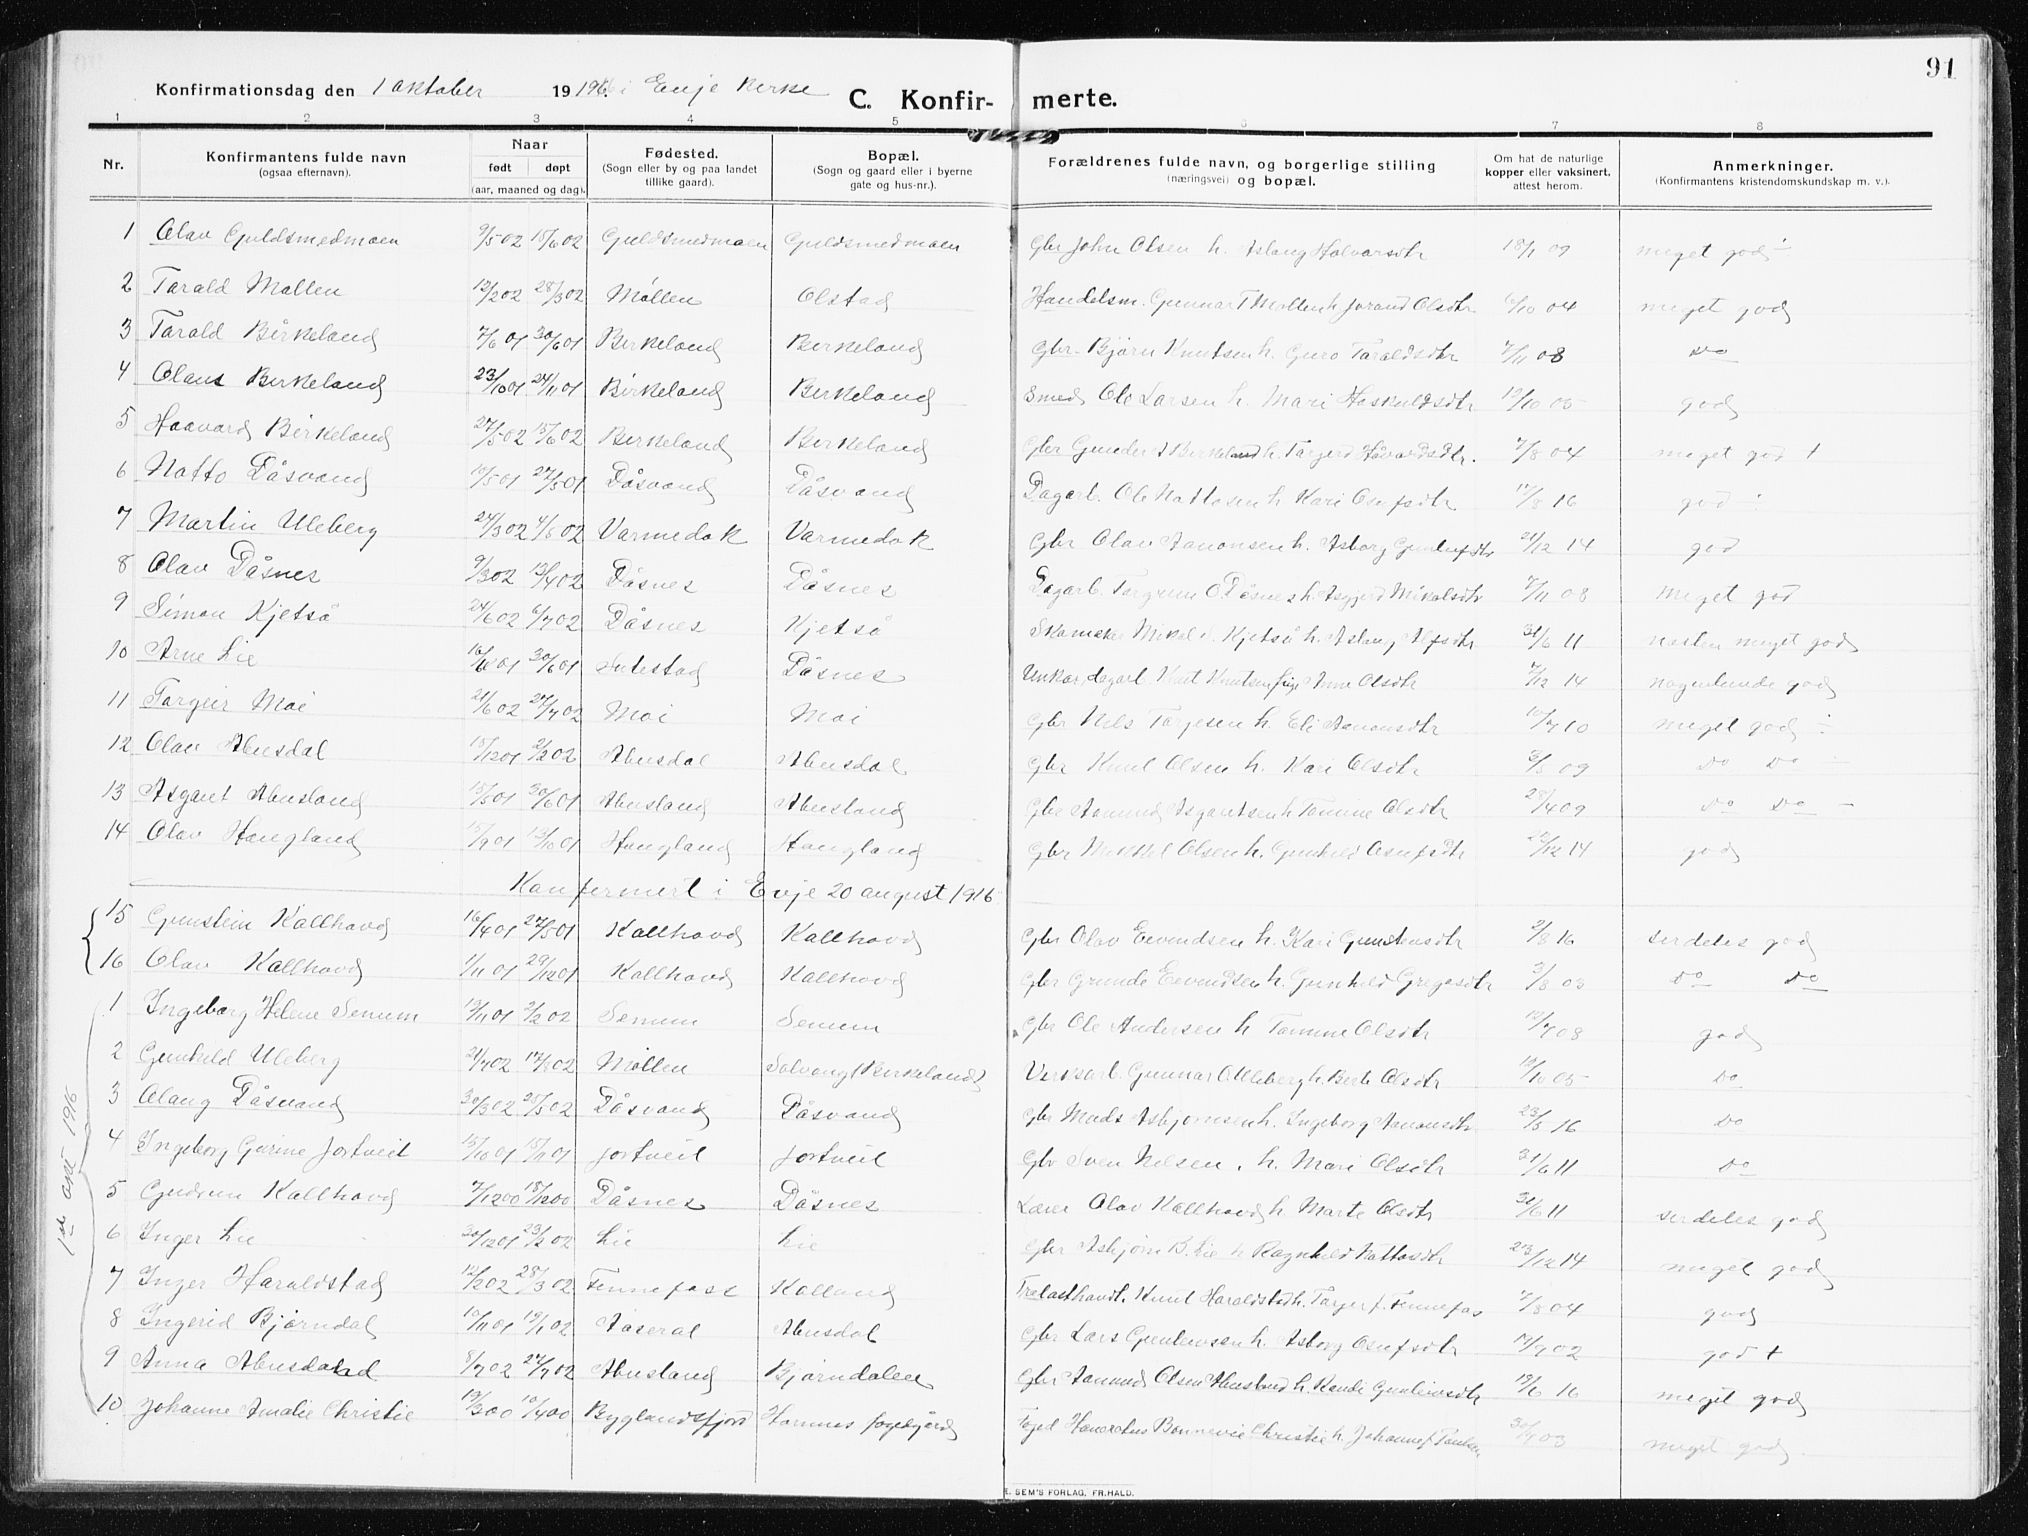 91
Konfirmationsdag den 1 oktober 19 1916 i Evje Kirke C. Konfir- merte.
1 2 3 4 5 6 7 8
Nr. Konfirmantens fulde navn (ogsaa efternavn). Naar født døpt (aar, maaned og dag). Fødested. (Sogn eller by og paa landet tillike gaard). Bopæl. (Sogn og gaard eller i byerne gate og hus-nr.). Forældrenes fulde navn, og borgerlige stilling (næringsvei) og bopæl. Om hat de naturlige kopper eller vaksinert, attest herom. Anmerkninger. (Konfirmantens kristendomskundskap m. v.).
1 Olav Guldsmedmoen 9/5 02 15/6 02 Guldsmedmoen Guldsmedmoen Gbr John Olsen h. Aslaug Halvorsdtr 18/1 09 meget god ÷
2 Tarald Møllen 12/2 02 28/3 02 Møllen Olstad Handelsm. Gunnar T Møllen h Jorand Olsdtr 6/10 04 meget god
3 Tarald Birkeland 7/6 01 30/6 01 Birkeland Birkeland Gbr. Bjørn Knutsen h. Guro Taraldsdtr 7/11 08 Do
4 Olaus Birkeland 23/10 01 24/11 01 Birkeland Birkeland Smed Ole Larsen h. Mari Høskuldsdtr 19/10 05 god
5 Haavard Birkeland 27/5 02 15/6 02 Birkeland Birkeland Gbr Gunder A Birkeland h. Targerd Håvardsdtr. 7/8 04 meget god +
6 Natto Dåsvand 10/5 01 27/5 01 Dåsvand Dåsvand Dagarb. Ole Nattosen h Kari Osufsdtr 17/8 16 god ÷
7 Martin Uleberg 24/3 02 4/5 02 Varmedok Varmedok Gbr Olav Aanonsen h. Asborg Gunlufsdtr 21/12 14 god
8 Olav Dåsnes 9/3 02 13/4 02 Dåsnes Dåsnes Dagarb. Targrim O Dåsnes h Asgjerd Mikalsdtr 7/11 08 Meget god
9 Simon Kjetså 24/6 02 6/7 02 Dåsnes Kjetså Skomaker Mikal S. Kjetså h. Aslaug Alfsdtr 31/6 11 næsten meget god
10 Arne Lie 16/6 01 30/6 01 Sutestad Dåsnes Unkar, dagarb. Knut Knutsen, pige Anne Olsdtr 7/12 14 nogenlunde god
11 Targeir Moi 21/6 02 27/7 02 Moi Moi Gbr Nils Tarjesen h. Eli Aanonsdtr 10/7 10 meget god ÷
12 Olav Abusdal 15/12 01 2/2 02 Abusdal Abusdal Gbr Knut Olsen h. Kari Olsdtr 3/5 09 Do Do —
13 Asgaut Abusland 15/5 01 30/6 01 Abusland Abusland Gbr Aamund Asgautsen h Tomine Olsdtr 28/4 09 Do Do —
14 Olav Haugland 15/9 01 13/10 01 Haugland Haugland Gbr Mikkel Olsen h. Gunhild Osufsdtr 22/12 14 god
Konfirmert i Evje 20 august 1916
15 Gunstein Kallhovd 16/4 01 27/5 01 Kallhovd Kallhovd Gbr Olav Eivindsen h. Kari Gunsteinsdtr 2/8 16 serdeles god
16 Olav Kallhovd 1/11 01 29/12 01 Kallhovd Kallhovd Gbr Grunde Eivindsen h. Gunhild Gregasdtr 3/8 03 Do Do
1ste okt 1916
1 Ingeborg Helene Senum 19/11 01 2/2 02 Senum Senum Gbr Ole Andersen h Tomine Olsdtr 12/7 08 god
2 Gunhild Uleberg 21/7 02 17/8 02 Møllen Solvang (Birkeland) Verksarb. Gunnar O Uleberg h. Berte Olsdtr 19/10 05 Do
3 Olaug Dåsvand 30/3 02 25/5 02 Dåsvand Dåsvand Gbr Mads Asbjørnsen h. Ingeborg Aanonsdtr 23/5 16 Do
4 Ingeborg Gurine Jortveit 15/10 01 15/11 01 Jortveit Jortveit Gbr Sven Nilsen, h. Mari Olsdtr 31/6 11 Do
5 Gudrun Kallhovd 7/12 00 18/12 00 Dåsnes Dåsnes Lærer Olav Kallhovd h Marte Olsdtr 31/6 11 serdeles god
6 Inger Lie 30/12 01 23/2 02 Lie Lie Gbr Asbjørn B. Lie h Ragnhild Nattosdtr 23/12 14 meget god
7 Inger Haraldstad 12/2 02 28/3 02 Fennefoss Kalland Trælasthandl. Knut Haraldstad h. Targer f. Fennefos 2/8 04 god
8 Ingerid Bjørndal 10/11 01 19/1 02 Aaseral Abusdal Gbr Lars Gunleivsen h. Asborg Osufsdtr 17/9 02 god +
9 Anna Abusdaland 8/7 02 27/7 02 Abusland Bjørndalen Gbr Aamund Olsen Abusland h. Kande Gunleivsdtr 19/6 16 meget god
10 Johanne Amalie Christie 19/3 00 10/4 00 Byglandsfjord Hornnes fogedgård Foged Honoratus Bonnevie Christie h Johanne f. Paulsen 30/9 03 meget god.
E. SEM'S FORLAG, FR.HALD.